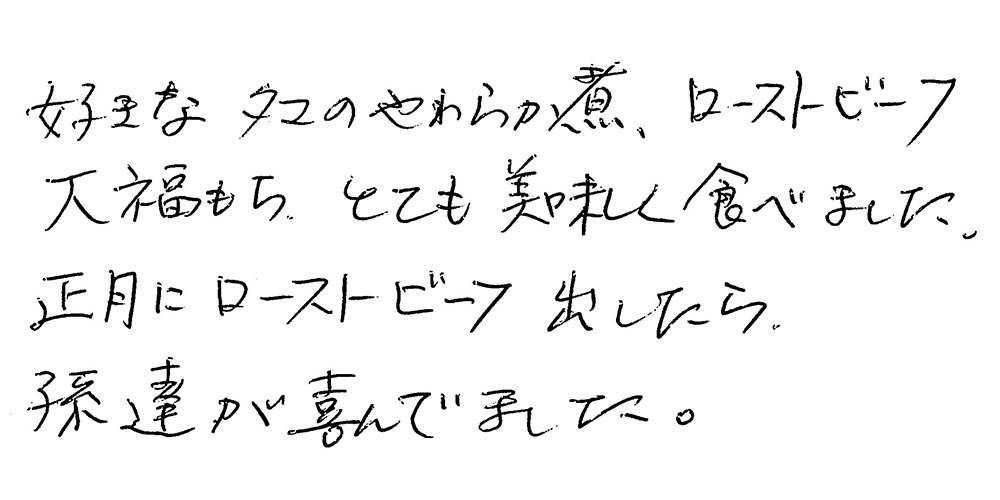 好きなタコのやわらか煮、ローストビーフ
大福もち、とても美味しく食べました。
正月にローストビーフ出したら、
孫達が喜んでましました。